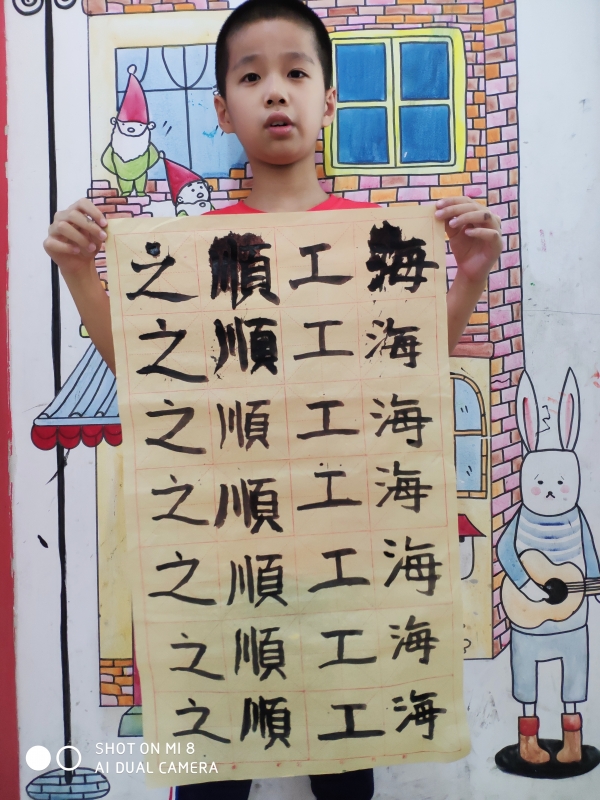 之順工海
之順工海
之順工海
之順工海
之順工海
之順工海
之順工海
SHOT ON MI 8
AI DUAL CAMERA